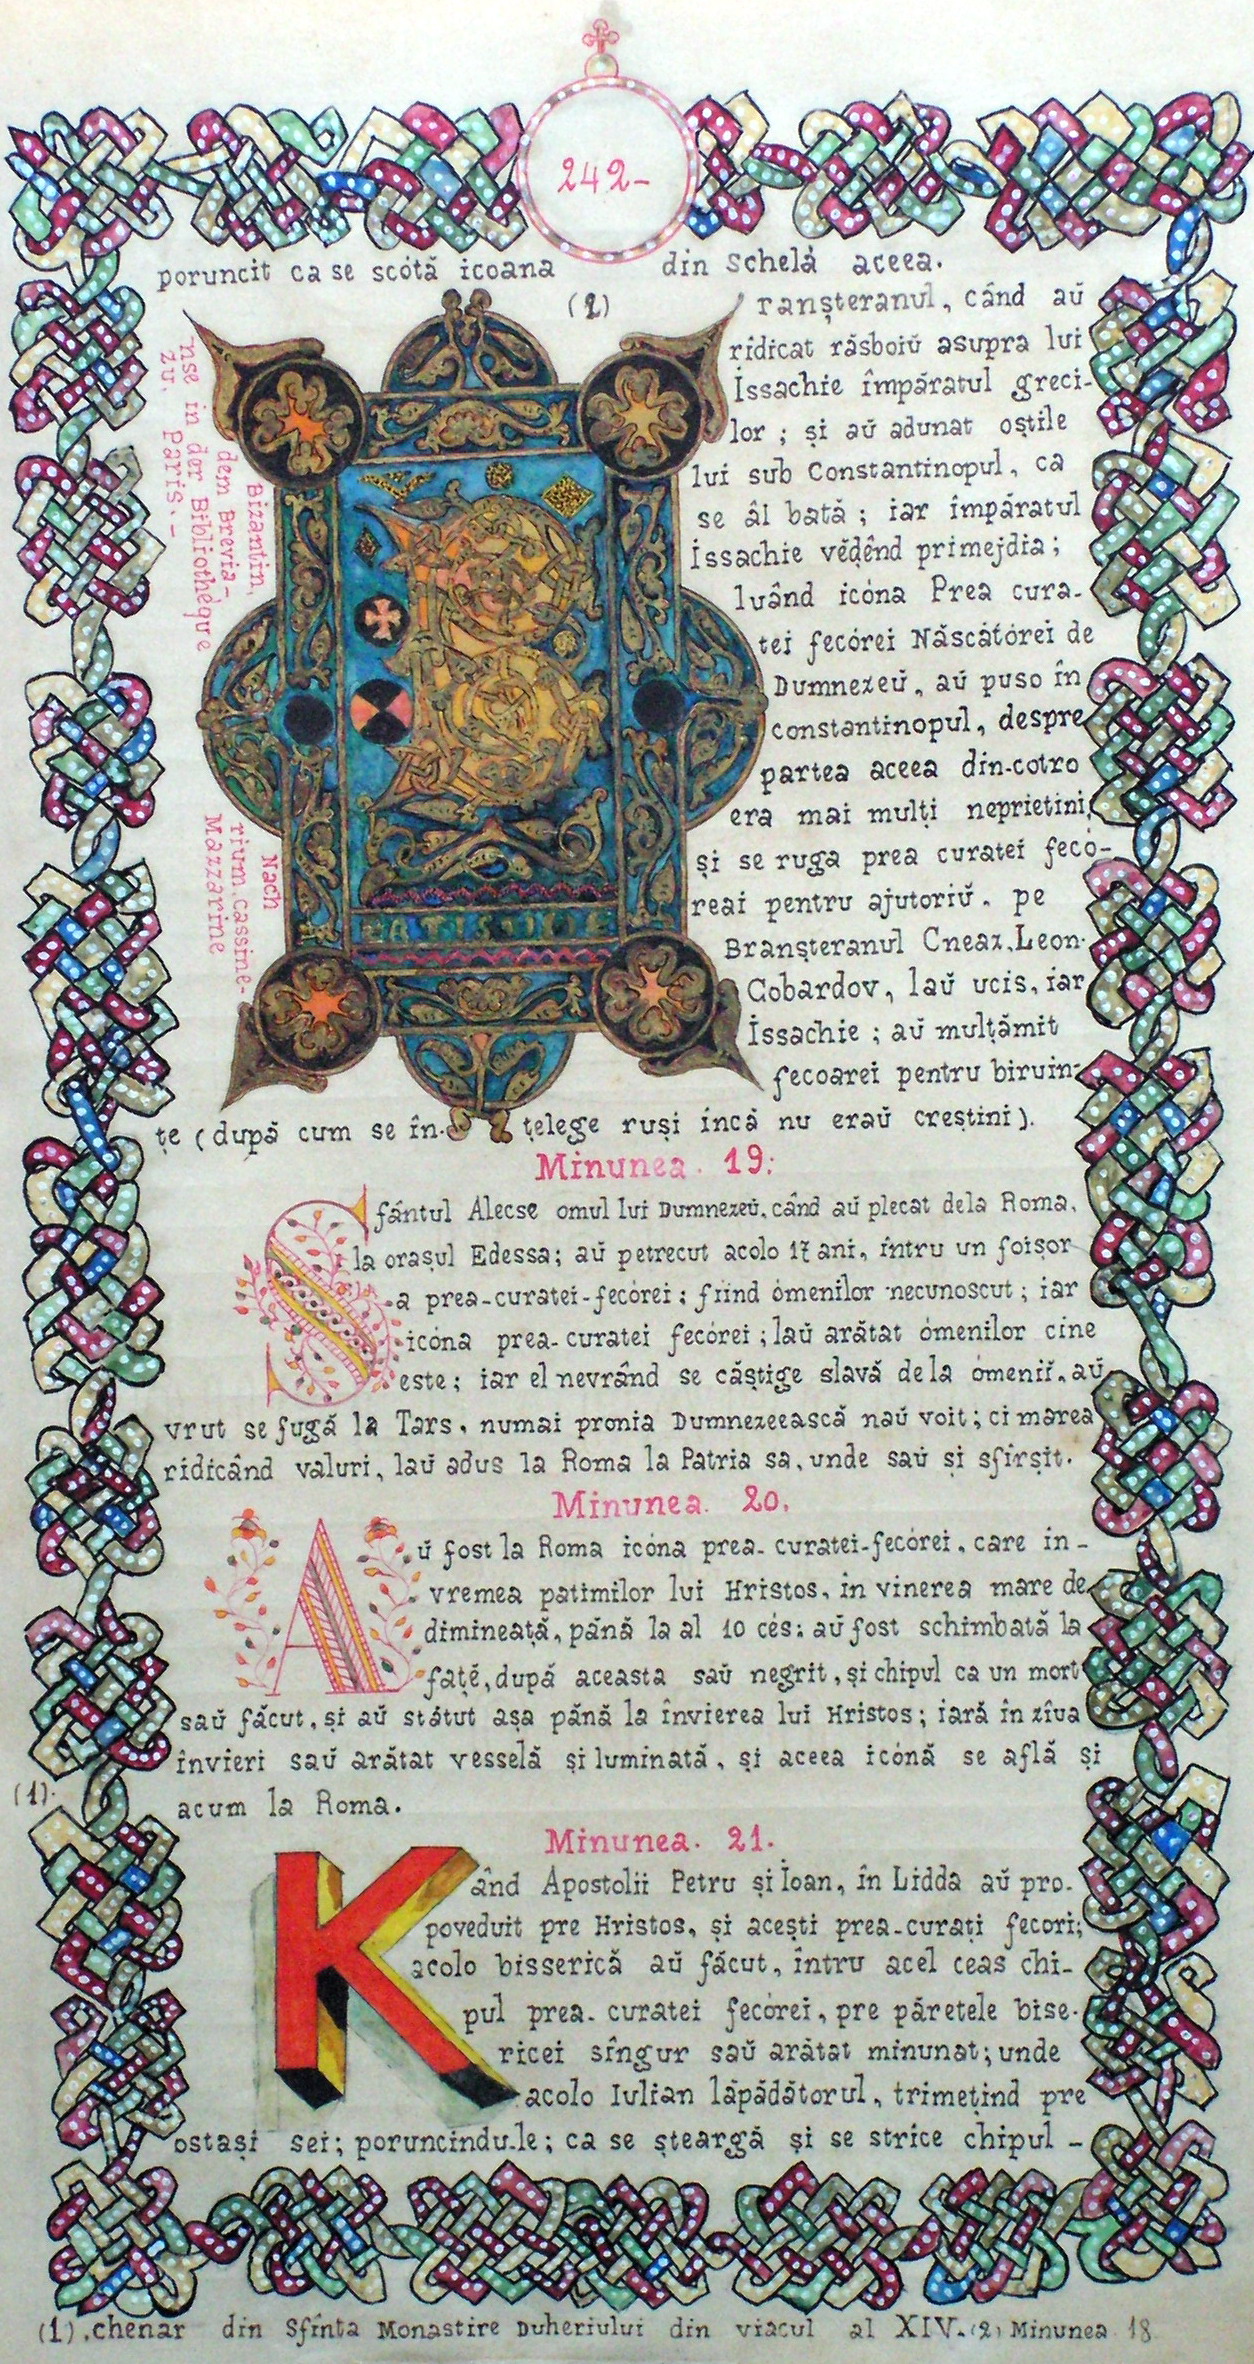 242-
poruncit ca se scótă icoana din Schelá aceea.
(2)
ranșteranul, când aŭ
ridicat răsboiŭ asupra lui
Issachie împăratul greci-
lor ; și aŭ adunat oștile
lui sub Constantinopul, ca
se âl bată ; iar împăratul
Issachie vĕḍênd primejdia ;
luând icóna Prea cura-
tei fecórei Născătórei de
Dumnezeŭ, aŭ puso în
constantinopul, despre
partea aceea din-cotro
era mai mulți neprietini,
și se ruga prea curatei feco-
reai pentru ajutoriŭ. pe
Branșteranul Cneaz, Leon-
Gobardov, laŭ ucis, iar
Issachie ; aŭ mulțămit
fecoarei pentru biruin-
țe (după cum se în-țelege ruși încă nu eraŭ creștini).
Nach Bizantin,
rium.cassine- dem Brevia-
Mazzarine in der Bibliothèque
zu, Paris. -
Minunea. 19:
Sfântul Alecse omul lui Dumnezeŭ, când aŭ plecat dela Roma,
la orașul Edessa; aŭ petrecut acolo 17 ani, întru un foișor
a prea-curatei-fecórei ; fiind ómenilor necunoscut ; iar
icóna prea-curatei fecórei ; laŭ arătat ómenilor cine
este ; iar el nevrând se câștige slavă dela ómenii, aŭ
vrut se fugă la Tars, numai pronia Dumnezeească naŭ voit ; ci marea
ridicând valuri, laŭ adus la Roma la Patria sa, unde saŭ și sfîrșit.
Minunea. 20.
Aŭ fost la Roma icóna prea-curatei-fecórei, care în-
vremea patimilor lui Hristos, în vinerea mare de
dimineață, până la al 10 cés: aŭ fost schimbată la
fațĕ, după aceasta saŭ negrit, și chipul ca un mort
saŭ făcut, și aŭ stătut așa până la învierea lui Hristos ; iară în zîua
învieri saŭ arătat vesselă și luminată, și aceea icónă se află și
(1).
acum la Roma.
Minunea. 21.
Kând Apostolii Petru și Ioan, în Lidda aŭ pro-
poveduit pre Hristos, și acești prea-curați fecori ;
acolo bisserică aŭ făcut, întru acel ceas chi-
pul prea-curatei fecórei, pre păretele bise-
ricei sîngur saŭ arătat minunat ; unde
acolo Iulian lăpădătorul, trimețind pre
ostași sei ; poruncindu-le ; ca se șteargă și se strice chipul -
(1).chenar din Sfînta Monastire Duheriului din viacul al XIV. (2) Minunea 18